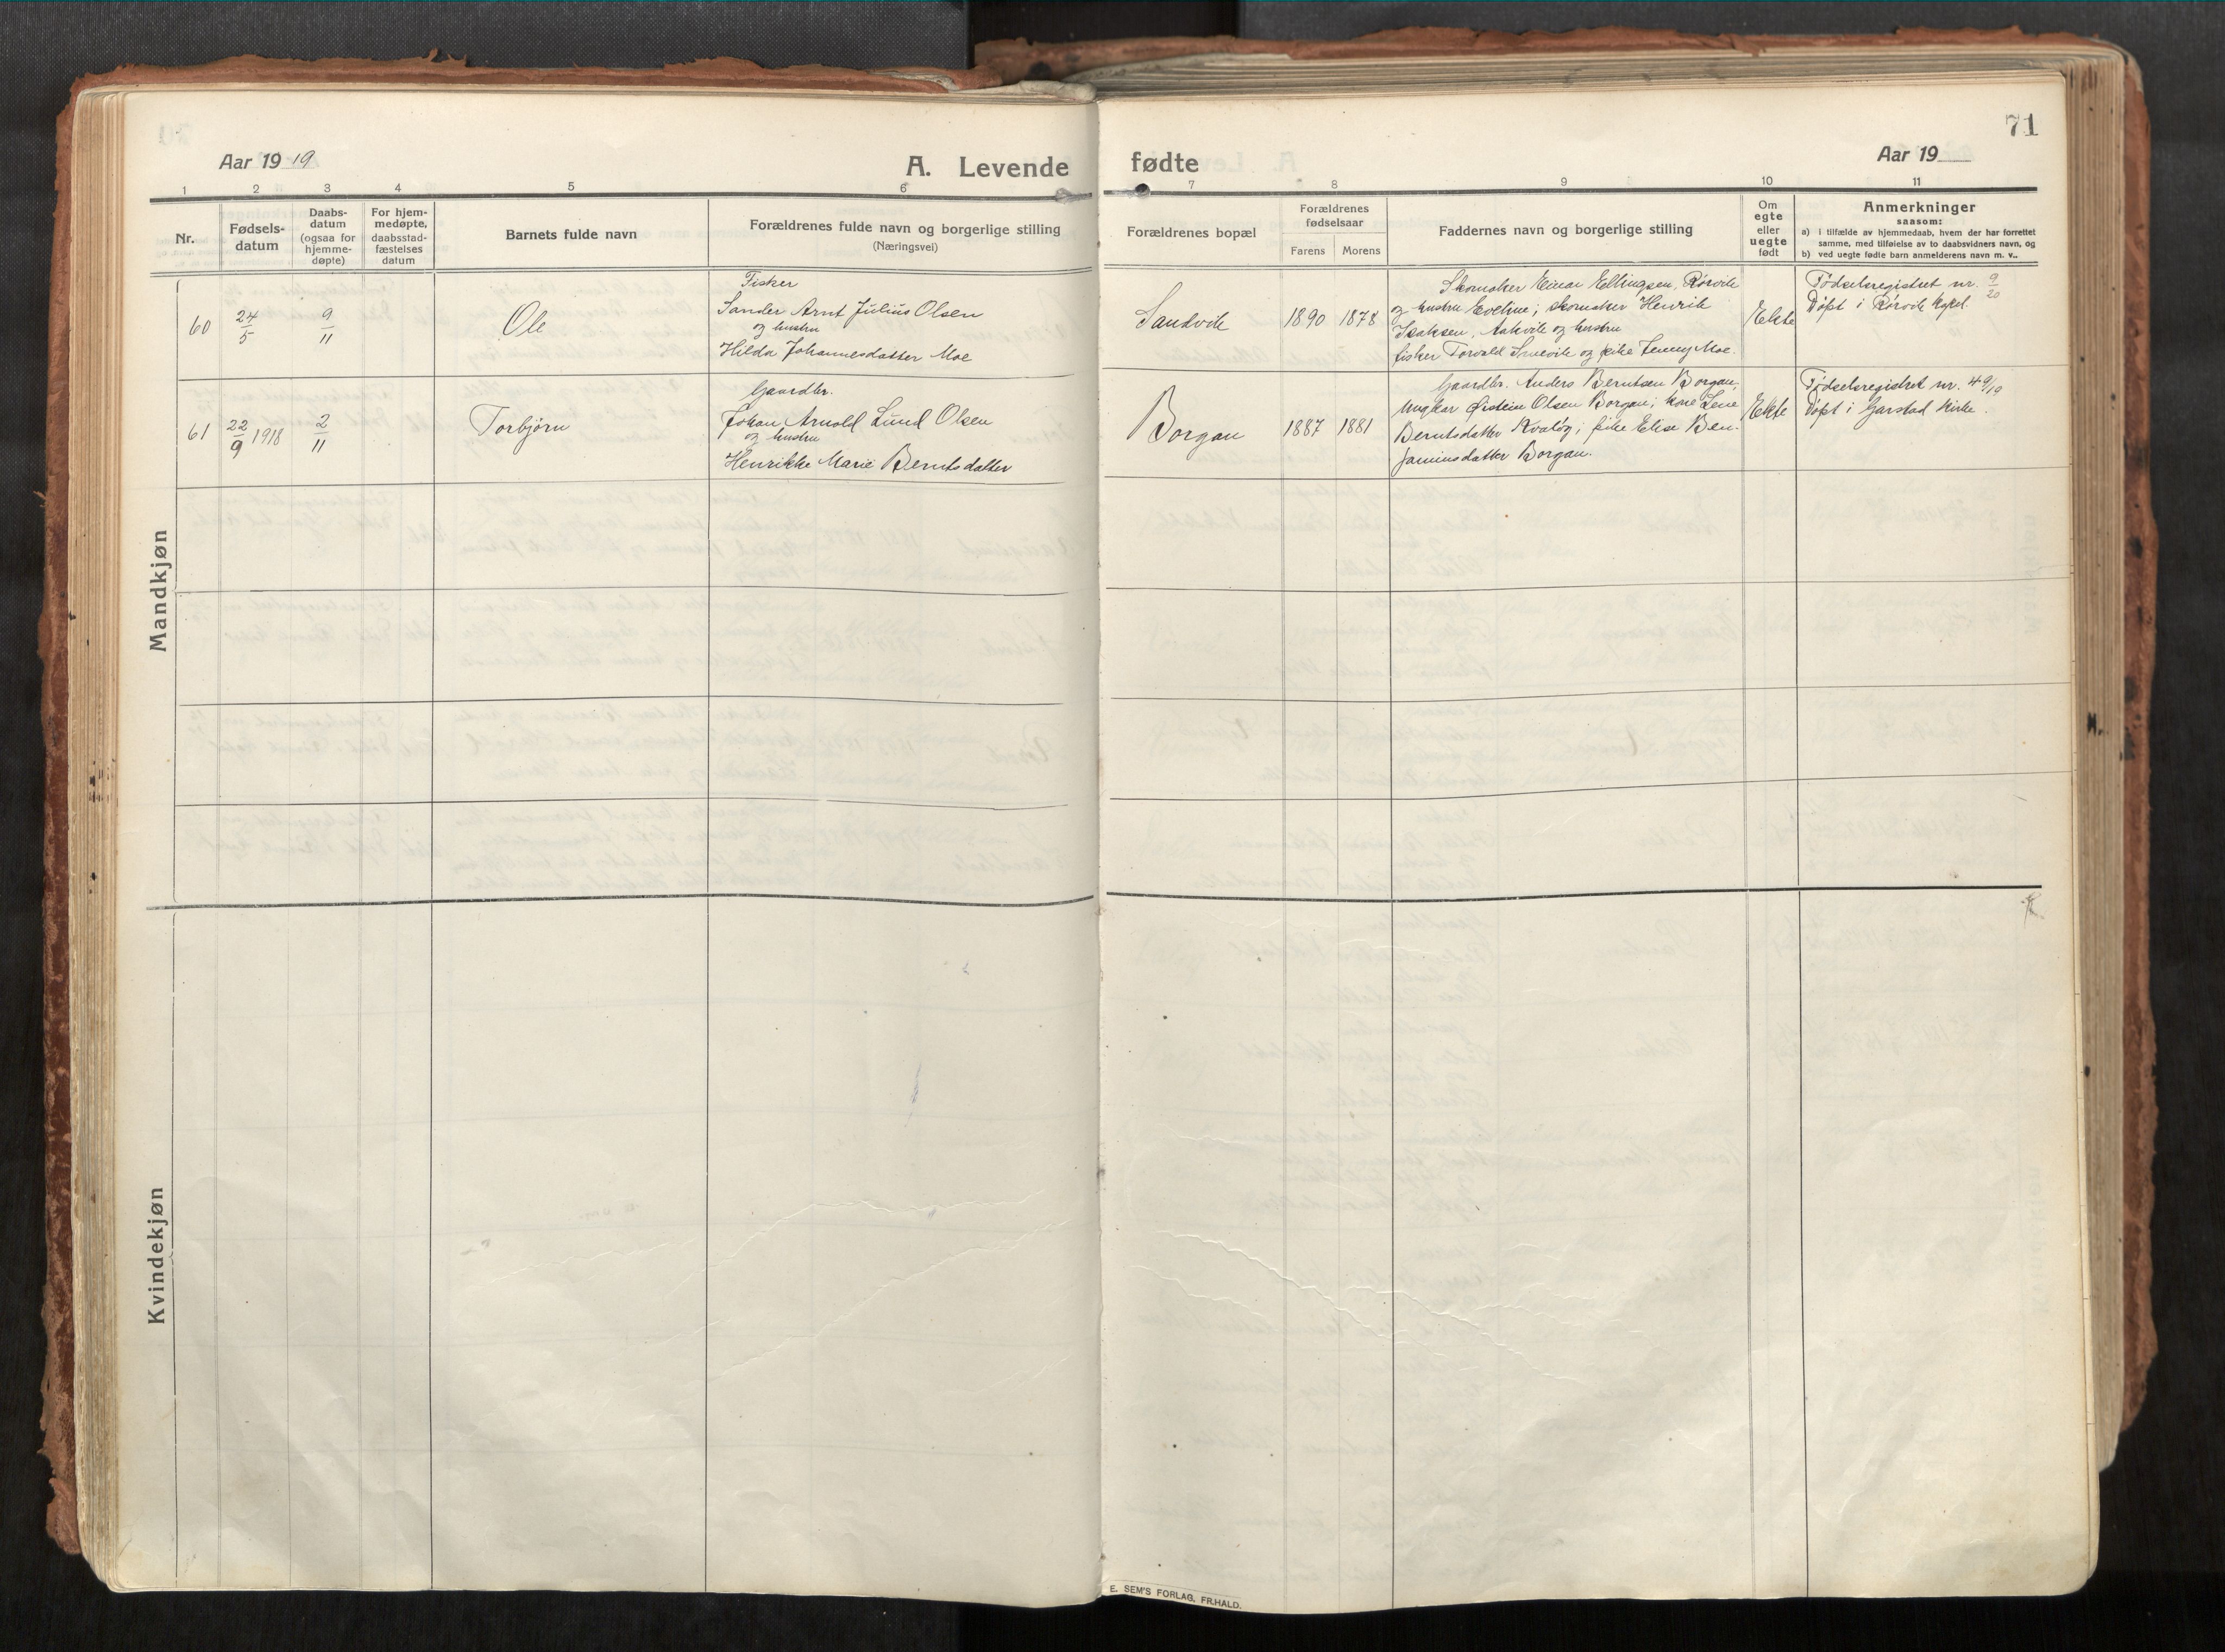 71
Aar 19 19
A. Levende
fødte
Aar 19
1 2 3 4 5 6 7 8 9 10 11
Nr.
Fødsels-
datum
Daabs-
datum
(ogsaa for
hjemme-
døpte)
For hjem-
medøpte,
daabsstad-
fæstelses
datum
Barnets fulde navn
Forældrenes fulde navn og borgerlige stilling
(Næringsvei)
Forældrenes bopæl
Forældrenes
fødselsaar
Farens Morens
Faddernes navn og borgerlige stilling
Om
egte
eller
uegte
født
Anmerkninger
saasom:
a) i tilfælde av hjemmedaab, hvem der har forrettet
samme, med tilføielse av to daabsvidners navn, og
b) ved uegte fødte barn anmelderens navn m. v..
Mandkjøn
60
24/5
9/11
Ole
Fisker
Sander Arnt Julius Olsen
og hustru
Hilda Johannesdatter Moe
Sandvik
1890 1878
Skomaker Einar Ellingsen, Rørvik
og hustru Eveline; skomaker Henrik
Isaksen, og hustru
fisker Torvald og pike Jenny Moe.
Ekte
Fødselsregistret nr. 9/20
Døpt i Rørvik kapel.
61
22/9 1918
2/11
Torbjørn
Gaardbr.
Johan Arnold Lund Olsen
og hustru
Henrikke Marie Berntsdatter
Borgan
1887 1881
Gaardbr. Anders Berntsen Borgan,
Ungkar Øistein Olsen Borgan; kone Lene
Berntsdatter Kvaløy; pike Elise Ben-
jaminsdatter Borgan.
Ekte
Fødselsregistret nr. 49/19
Døpt i Garstad kirke.
Kvindekjøn
E. SEM'S FORLAG, FR.HALD.